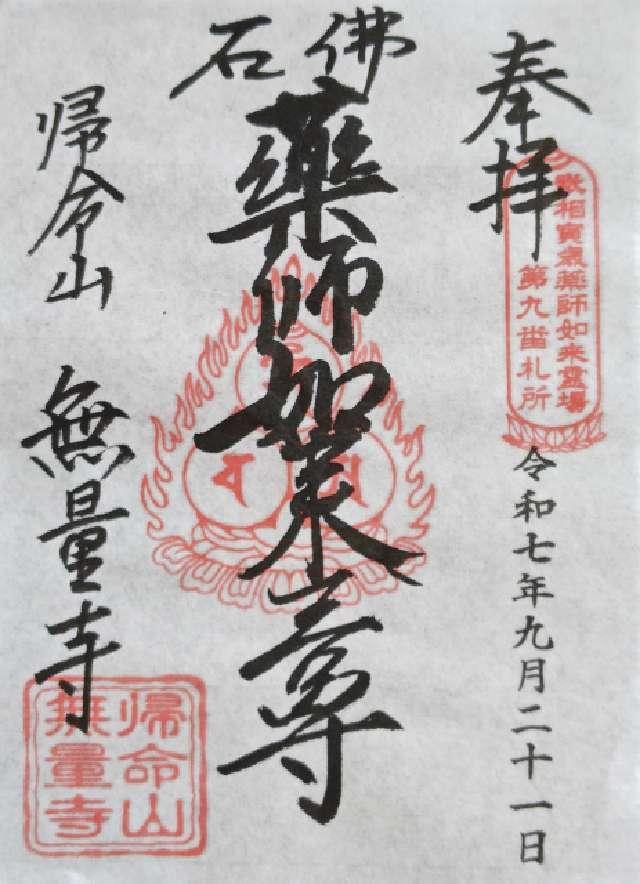 奉拝
武相寅歳薬師如来霊場
第九番札所
令和七年九月二十一日
石佛
藥師如来尊
帰命山
無量寺
帰命山
無量寺